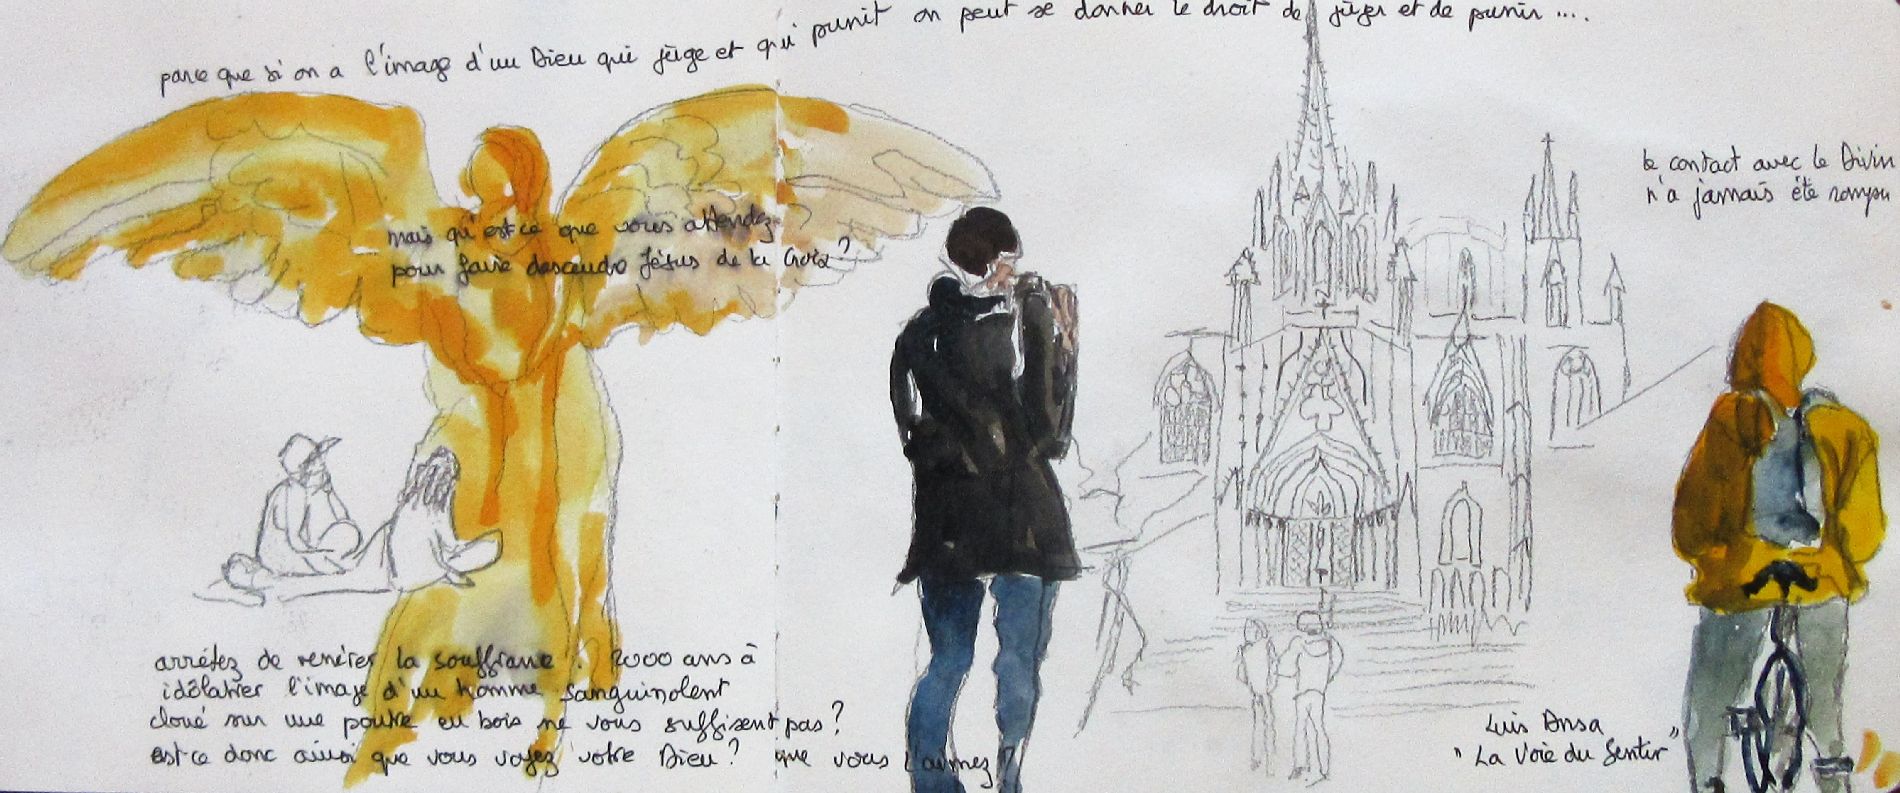 parce que si on a l'image d'un Dieu qui juge et qui punit on peut se donner le droit de juger et de punir ....
le contact avec le Divin
n'a jamais été rompu
mais qu'est ce que vous attendez
pour faire descendre Jésus de la Croix ?
arrêtez de vénérer la souffrance . 2000 ans à
idôlatrer l'image d'un homme sanguinolent
cloué sur une poutre en bois ne vous suffisent pas ?
est ce donc ainsi que vous voyez votre Dieu ? que vous l'aimez ?
Luis Ansa
"La Voie du Sentir"